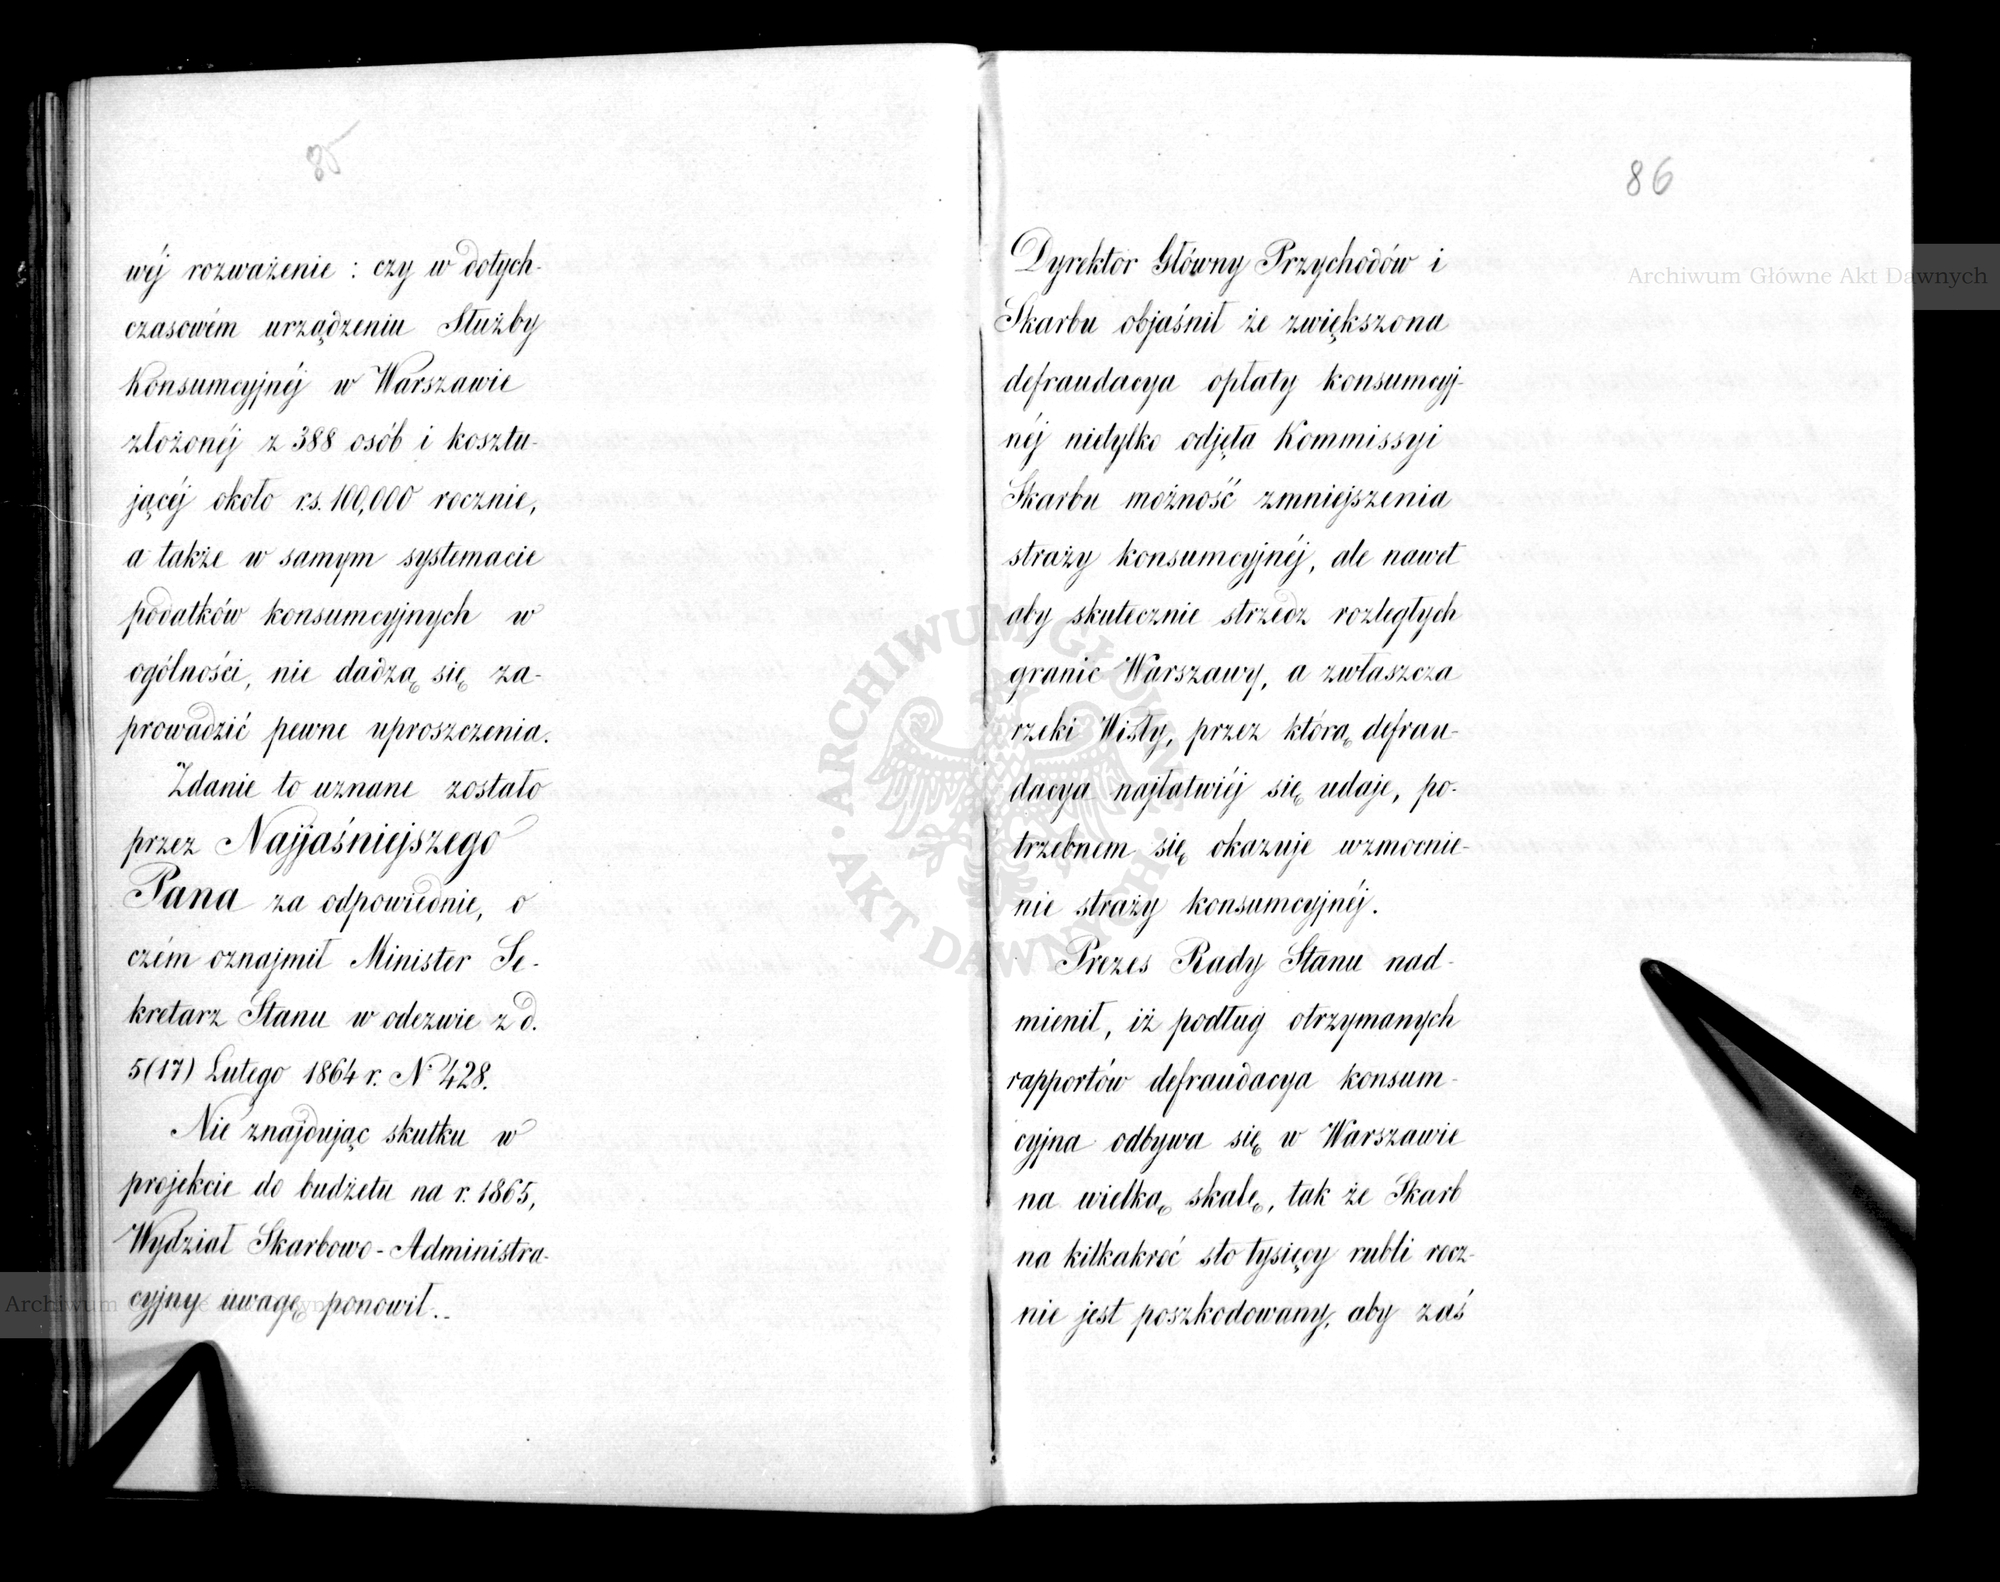 85
wéj rozważenie : czy w dotych-
czasowém urządzeniu Służby
Konsumcyjnéj w Warszawie
złożonéj z 388 osób i kosztu-
jącéj około r.s. 100,000 rocznie,
a także w samym systemacie
podatków konsumcyjnych w
ogólności, nie dadzą się za-
prowadzić pewne uproszczenia.
Zdanie to uznane zostało
przez Najjaśniejszego
Pana za odpowiednie, o
czém oznajmił Minister Se-
kretarz Stanu w odezwie z d.
5(17) Lutego 1864 r. № 428.
Nie znajdując skutku w
projekcie do budżetu na r. 1865,
Wydział Skarbowo-Administra-
cyjny uwagę ponowił.
86
Dyrektor Główny Przychodów i
Skarbu objaśnił że zwiększona
defraudacya opłaty konsumcyj-
néj nietylko odjęła Kommissyi
Skarbu możność zmniejszenia
straży konsumcyjnéj, ale nawet
aby skutecznie strzedz rozległych
granic Warszawy, a zwłaszcza
rzeki Wisły, przez którą defrau-
dacya najłatwiéj się udaje, po-
trzebnem się okazuje wzmocnie-
nie straży konsumcyjnéj.
Prezes Rady Stanu nad-
mienił, iż podług otrzymanych
rapportów defraudacya konsum-
cyjna odbywa się w Warszawie
na wielką skalę, tak że Skarb
na kilkakroć sto tysięcy rubli rocz-
nie jest poszkodowany, aby zaś
Archiwum Główne Akt Dawnych
ARCHIWUM GŁÓWNE AKT DAWNYCH